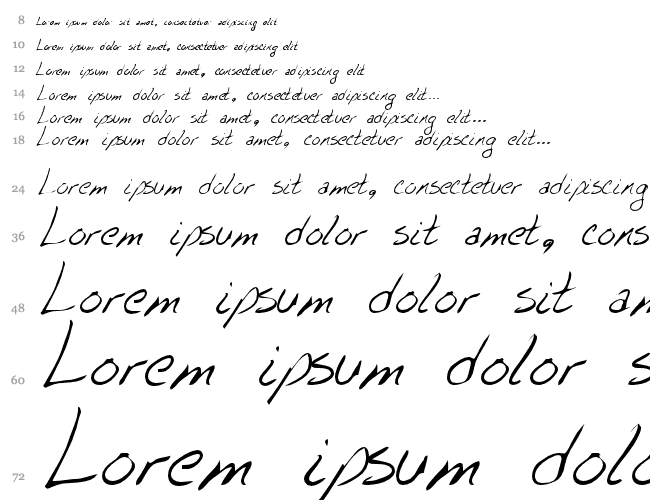 8 Lorem ipsum dolor sit amet, consectetuer adipiscing elit
10 Lorem ipsum dolor sit amet, consectetuer adipiscing elit
12 Lorem ipsum dolor sit amet, consectetuer adipiscing elit
14 Lorem ipsum dolor sit amet, consectetuer adipiscing elit...
16 Lorem ipsum dolor sit amet, consectetuer adipiscing elit...
18 Lorem ipsum dolor sit amet, consectetuer adipiscing elit...
24 Lorem ipsum dolor sit amet, consectetuer adipiscing
36 Lorem ipsum dolor sit amet, cons
48 Lorem ipsum dolor sit am
60 Lorem ipsum dolor s
72 Lorem ipsum dolo